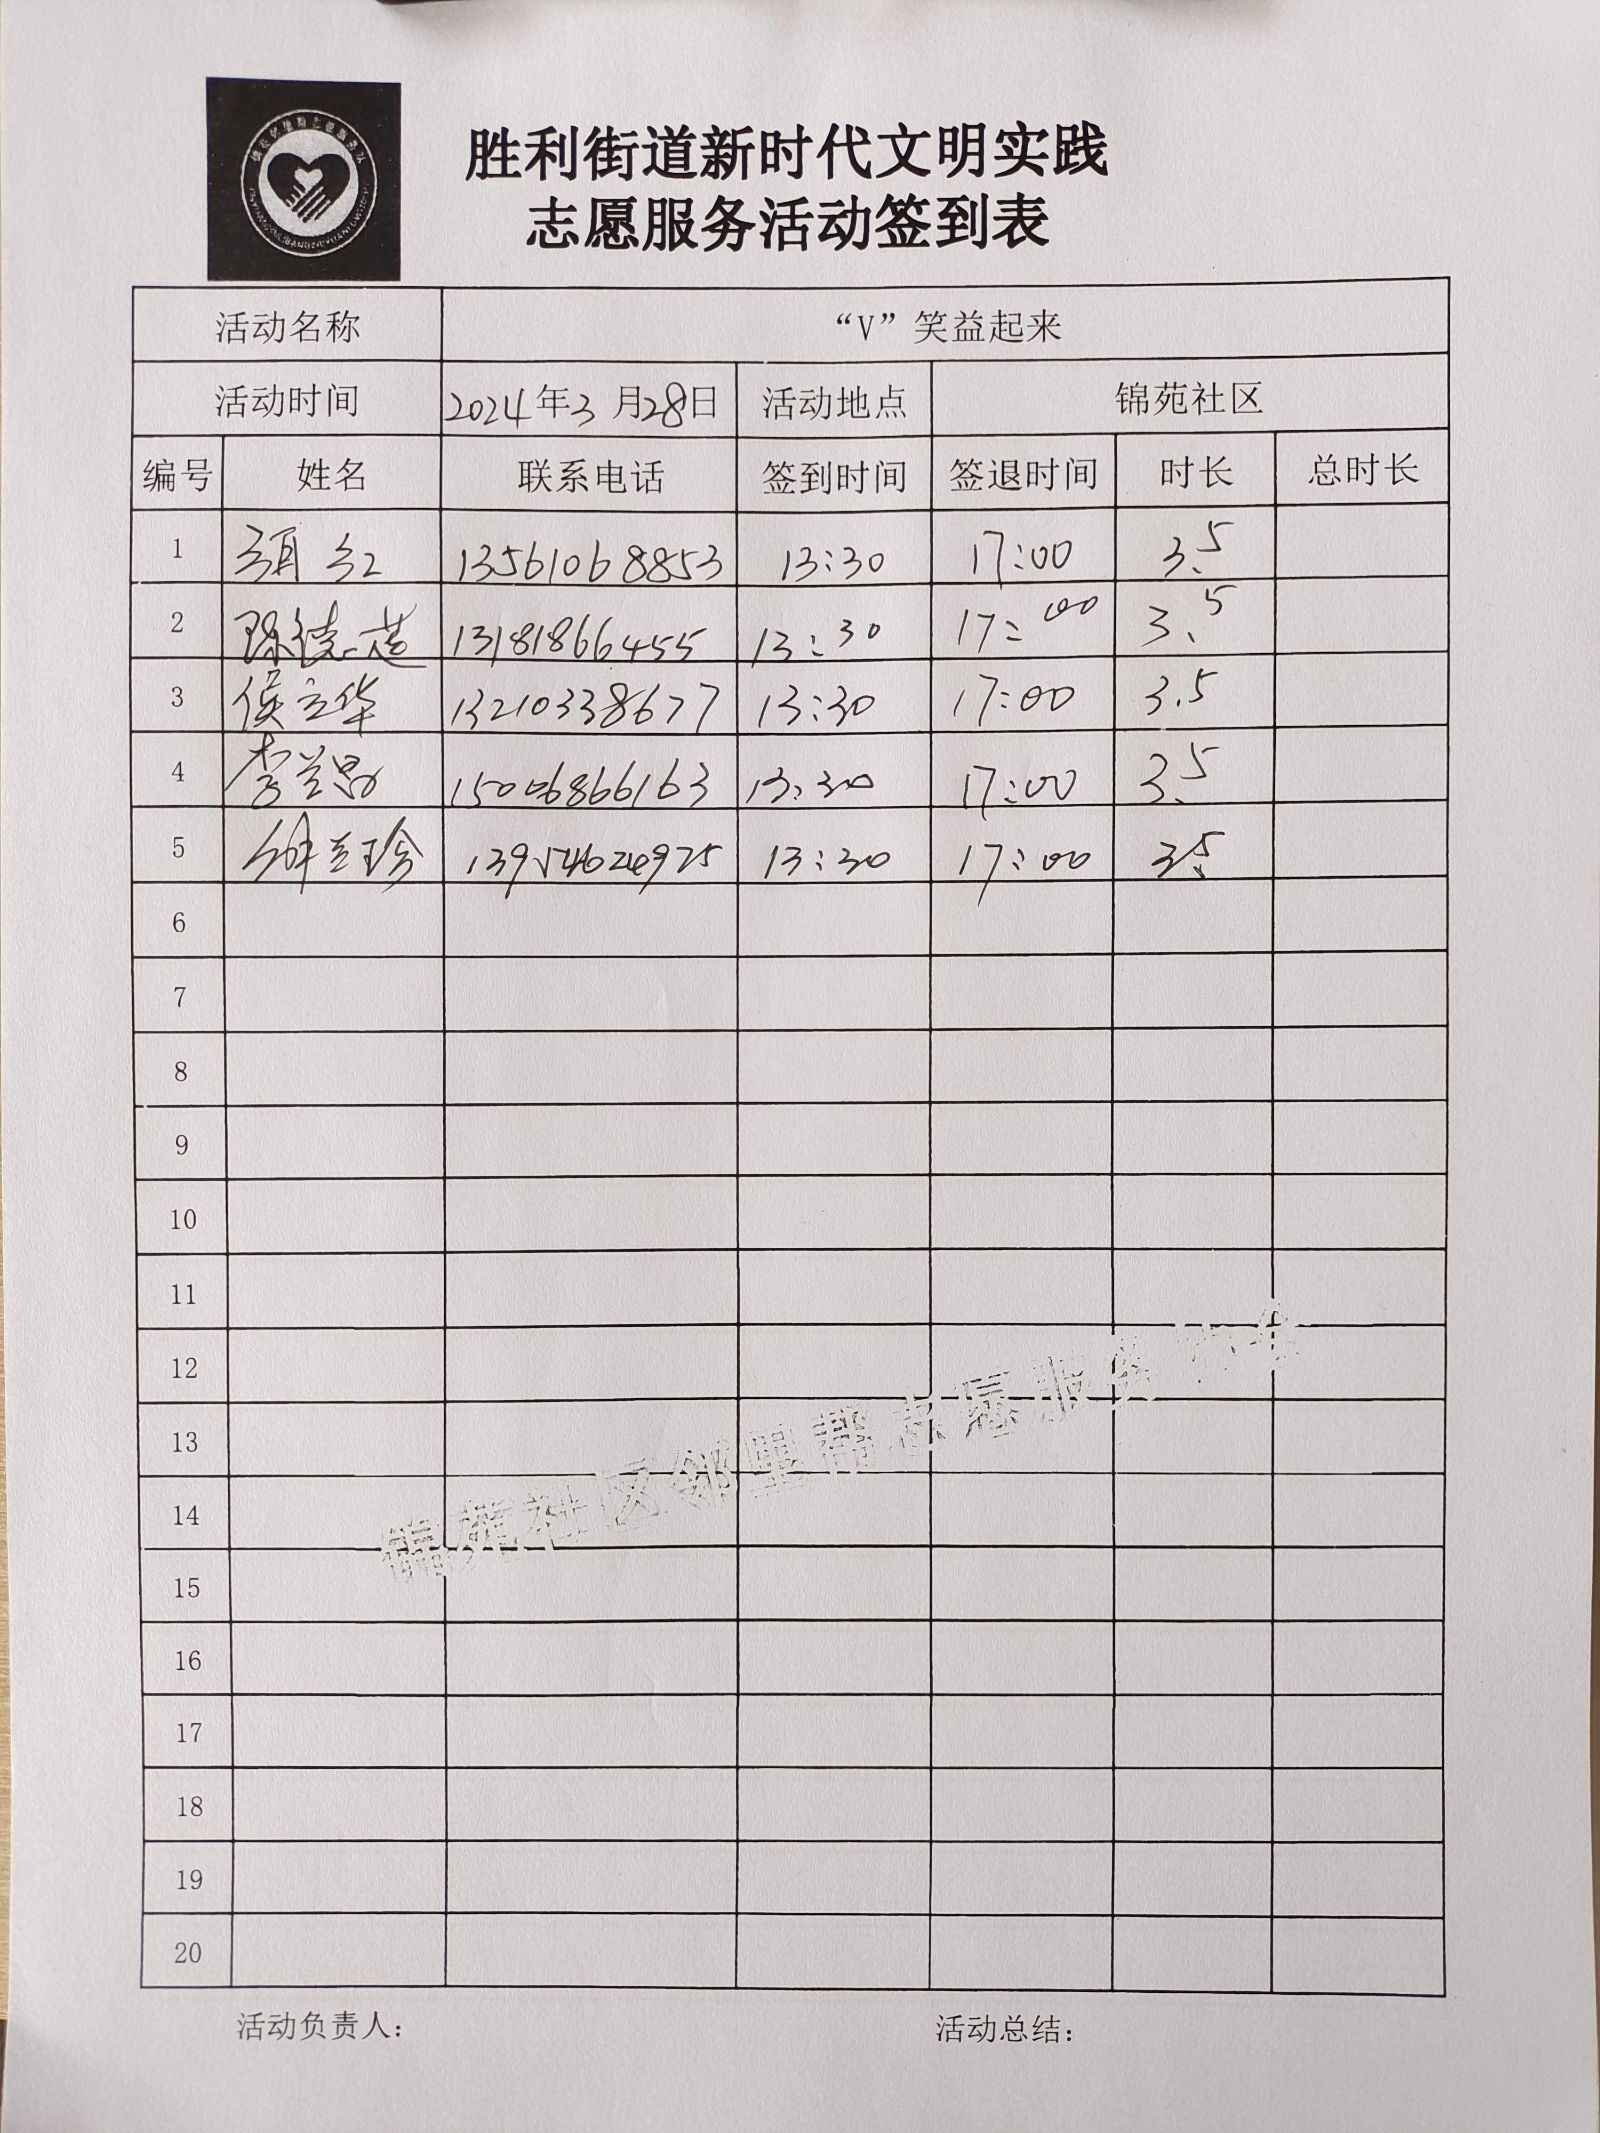 胜利街道新时代文明实践
志愿服务活动签到表
活动名称 “V”笑益起来
活动时间 2024年3月28日 活动地点 锦苑社区
编号 姓名 联系电话 签到时间 签退时间 时长 总时长
1 红 13561068853 13:30 17:00 3.5
2 13181866455 13:30 17:00 3.5
3 侯立华 13210338677 13:30 17:00 3.5
4 李兰 15006866163 13:30 17:00 3.5
5 兰珍 13954624975 13:30 17:00 3.5
6
7
8
9
10
11
12
13
14
15
16
17
18
19
20
锦苑社区邻里帮志愿服务协会
活动负责人： 活动总结：